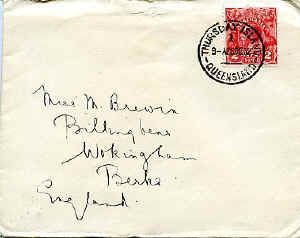 THURSDAY ISLAND
QUEENSLAND
Miss M. Brewin
Billingbere
Wokingham
Berks
England.